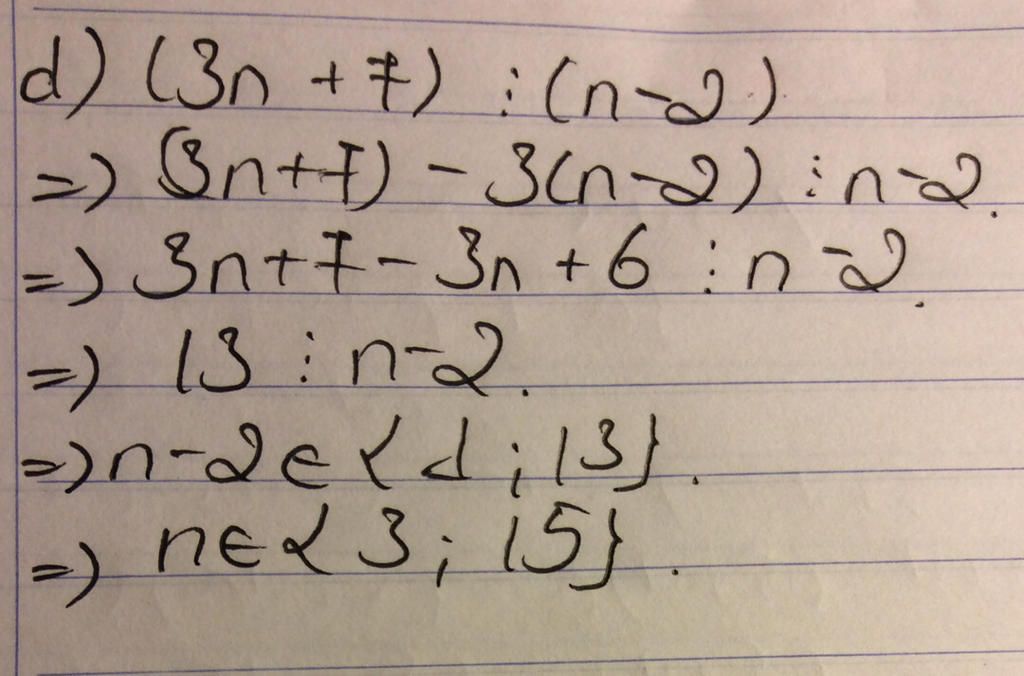 d) (3n + 7) ⋮ (n-2)
=> (3n+7) - 3(n-2) ⋮ n-2.
=> 3n+7 - 3n + 6 ⋮ n-2.
=> 13 ⋮ n-2.
=> n-2 ∈ {1; 13}.
=> n ∈ {3; 15}.